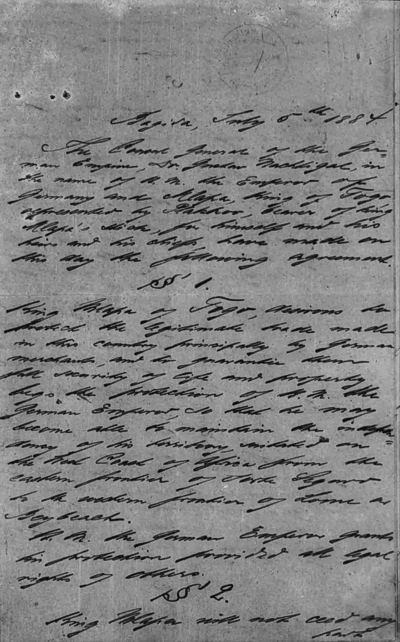 Bagida, July 5th 1884
The Consul General of the Ger-
man Empire, Dr. Gustav Nachtigal, in
the name of H. M. the Emperor of
Germany and Mlapa, King of Togo,
represented by Plakkoo, bearer of King
Mlapa's stick, for himself and his
heirs and his chiefs have made on
this day the following agreement.
§ 1.
King Mlapa of Togo, desirous to
protect the legitimate trade made
in this country principally by German
merchants and to guarantee them
full security of life and property
begs the protection of H. M. the
German Emperor, so that he may
become able to maintain the indepen=
dency of his territory situated on
the West Coast of Africa from the
eastern frontier of Porto Seguro
to the western frontier of Lome or
Bey Beach.
H. M. the German Emperor grants
his protection provided all legal
rights of others.
§ 2.
King Mlapa will not cede any
part